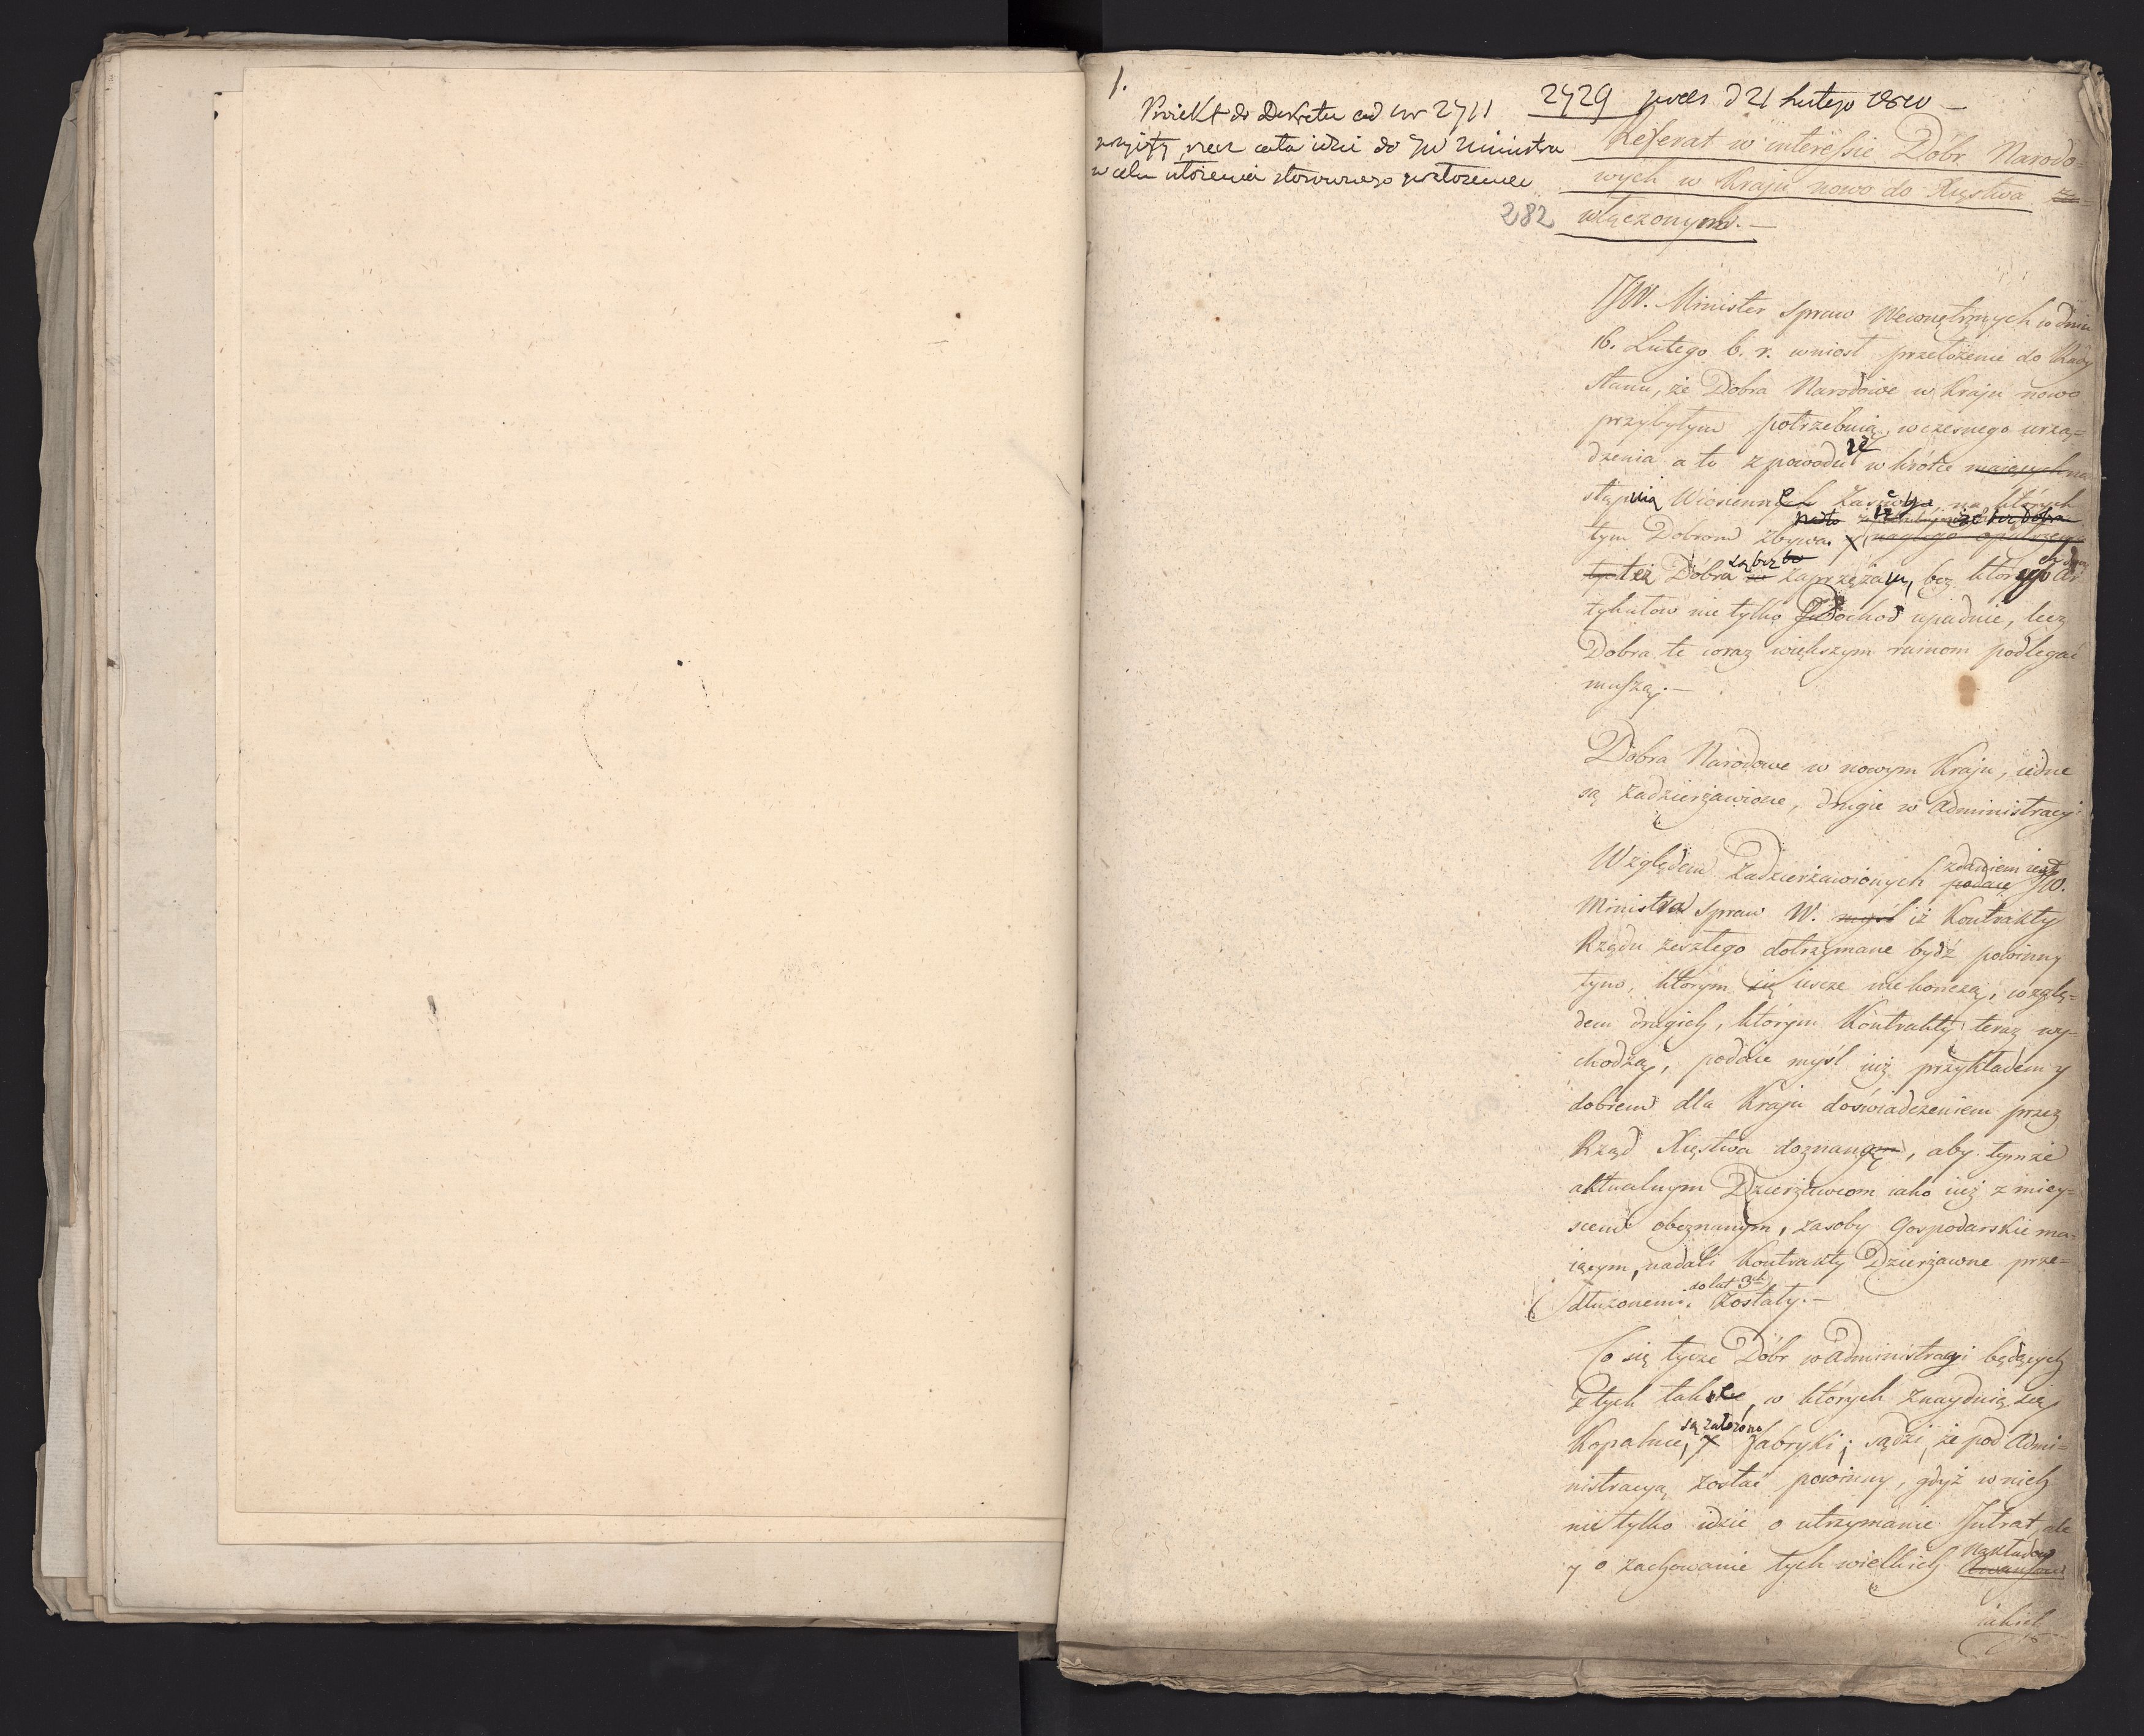 1.
Proiekt do Dekretu ad nr 2711
przyięty, rzecz cała idzie do JW Ministra
w celu ułożenia stosownego przełożenia
2729 praes d 21 Lutego 1810 —
Referat w interessie Dóbr Narodo=
wych w Kraju nowo do Xięstwa
282
włączonym. —
JW. Minister Spraw Wewnętrznych w dniu
16. Lutego b. r. wniosł przełożenie do Rady
Stanu, że Dobra Narodowe w Kraju nowo
przybytym potrzebuią wczesnego urzą=
dzenia a to z powodu że wkrótce maiących na
stąpią Wiosenne Zasiewy, na których
tym Dobrom zbywa. nagłego opatrzenia
też Dobra są bez zaprzężaju, bez których Ar
tykułów nie tylko Dochod upadnie, lecz
Dobra te coraz większym ruinom podlegać
muszą. —
Dobra Narodowe w nowym Kraju, iedne
są zadzierżawione, drugie w Administracyi
Względem Zadzierżawionych zdaniem iest
podaie JW.
Ministra Spraw W. myśl iż Kontrakty
Rządu zeszłego dotrzymane bydź powinny
tym, którym się ieszcze nie kończą, wzglę=
dem drugich, którym Kontrakty teraz wy=
chodzą, podaie myśl iuż przykładem y
dobrem dla Kraju doświadczeniem przez
Rząd Xięstwa doznaną, aby tymże
aktualnym Dzierżawcom iako iuż z miey=
scem obeznanym, zasoby Gospodarskie ma=
iącym, nadali Kontrakty Dzierżawne prze=
do lat 3ch
dłużonemi zostały. —
Co się tycze Dóbr w Administracyi będących
z tych takie, w których znayduią się
są założone
Kopalnie, Fabryki; sądzi, że pod Admi=
nistracyą zostać powinny, gdyż w nich
nie tylko idzie o utrzymanie Intrat, ale
nakładów
y o zachowanie tych wielkich Awansów
iakich